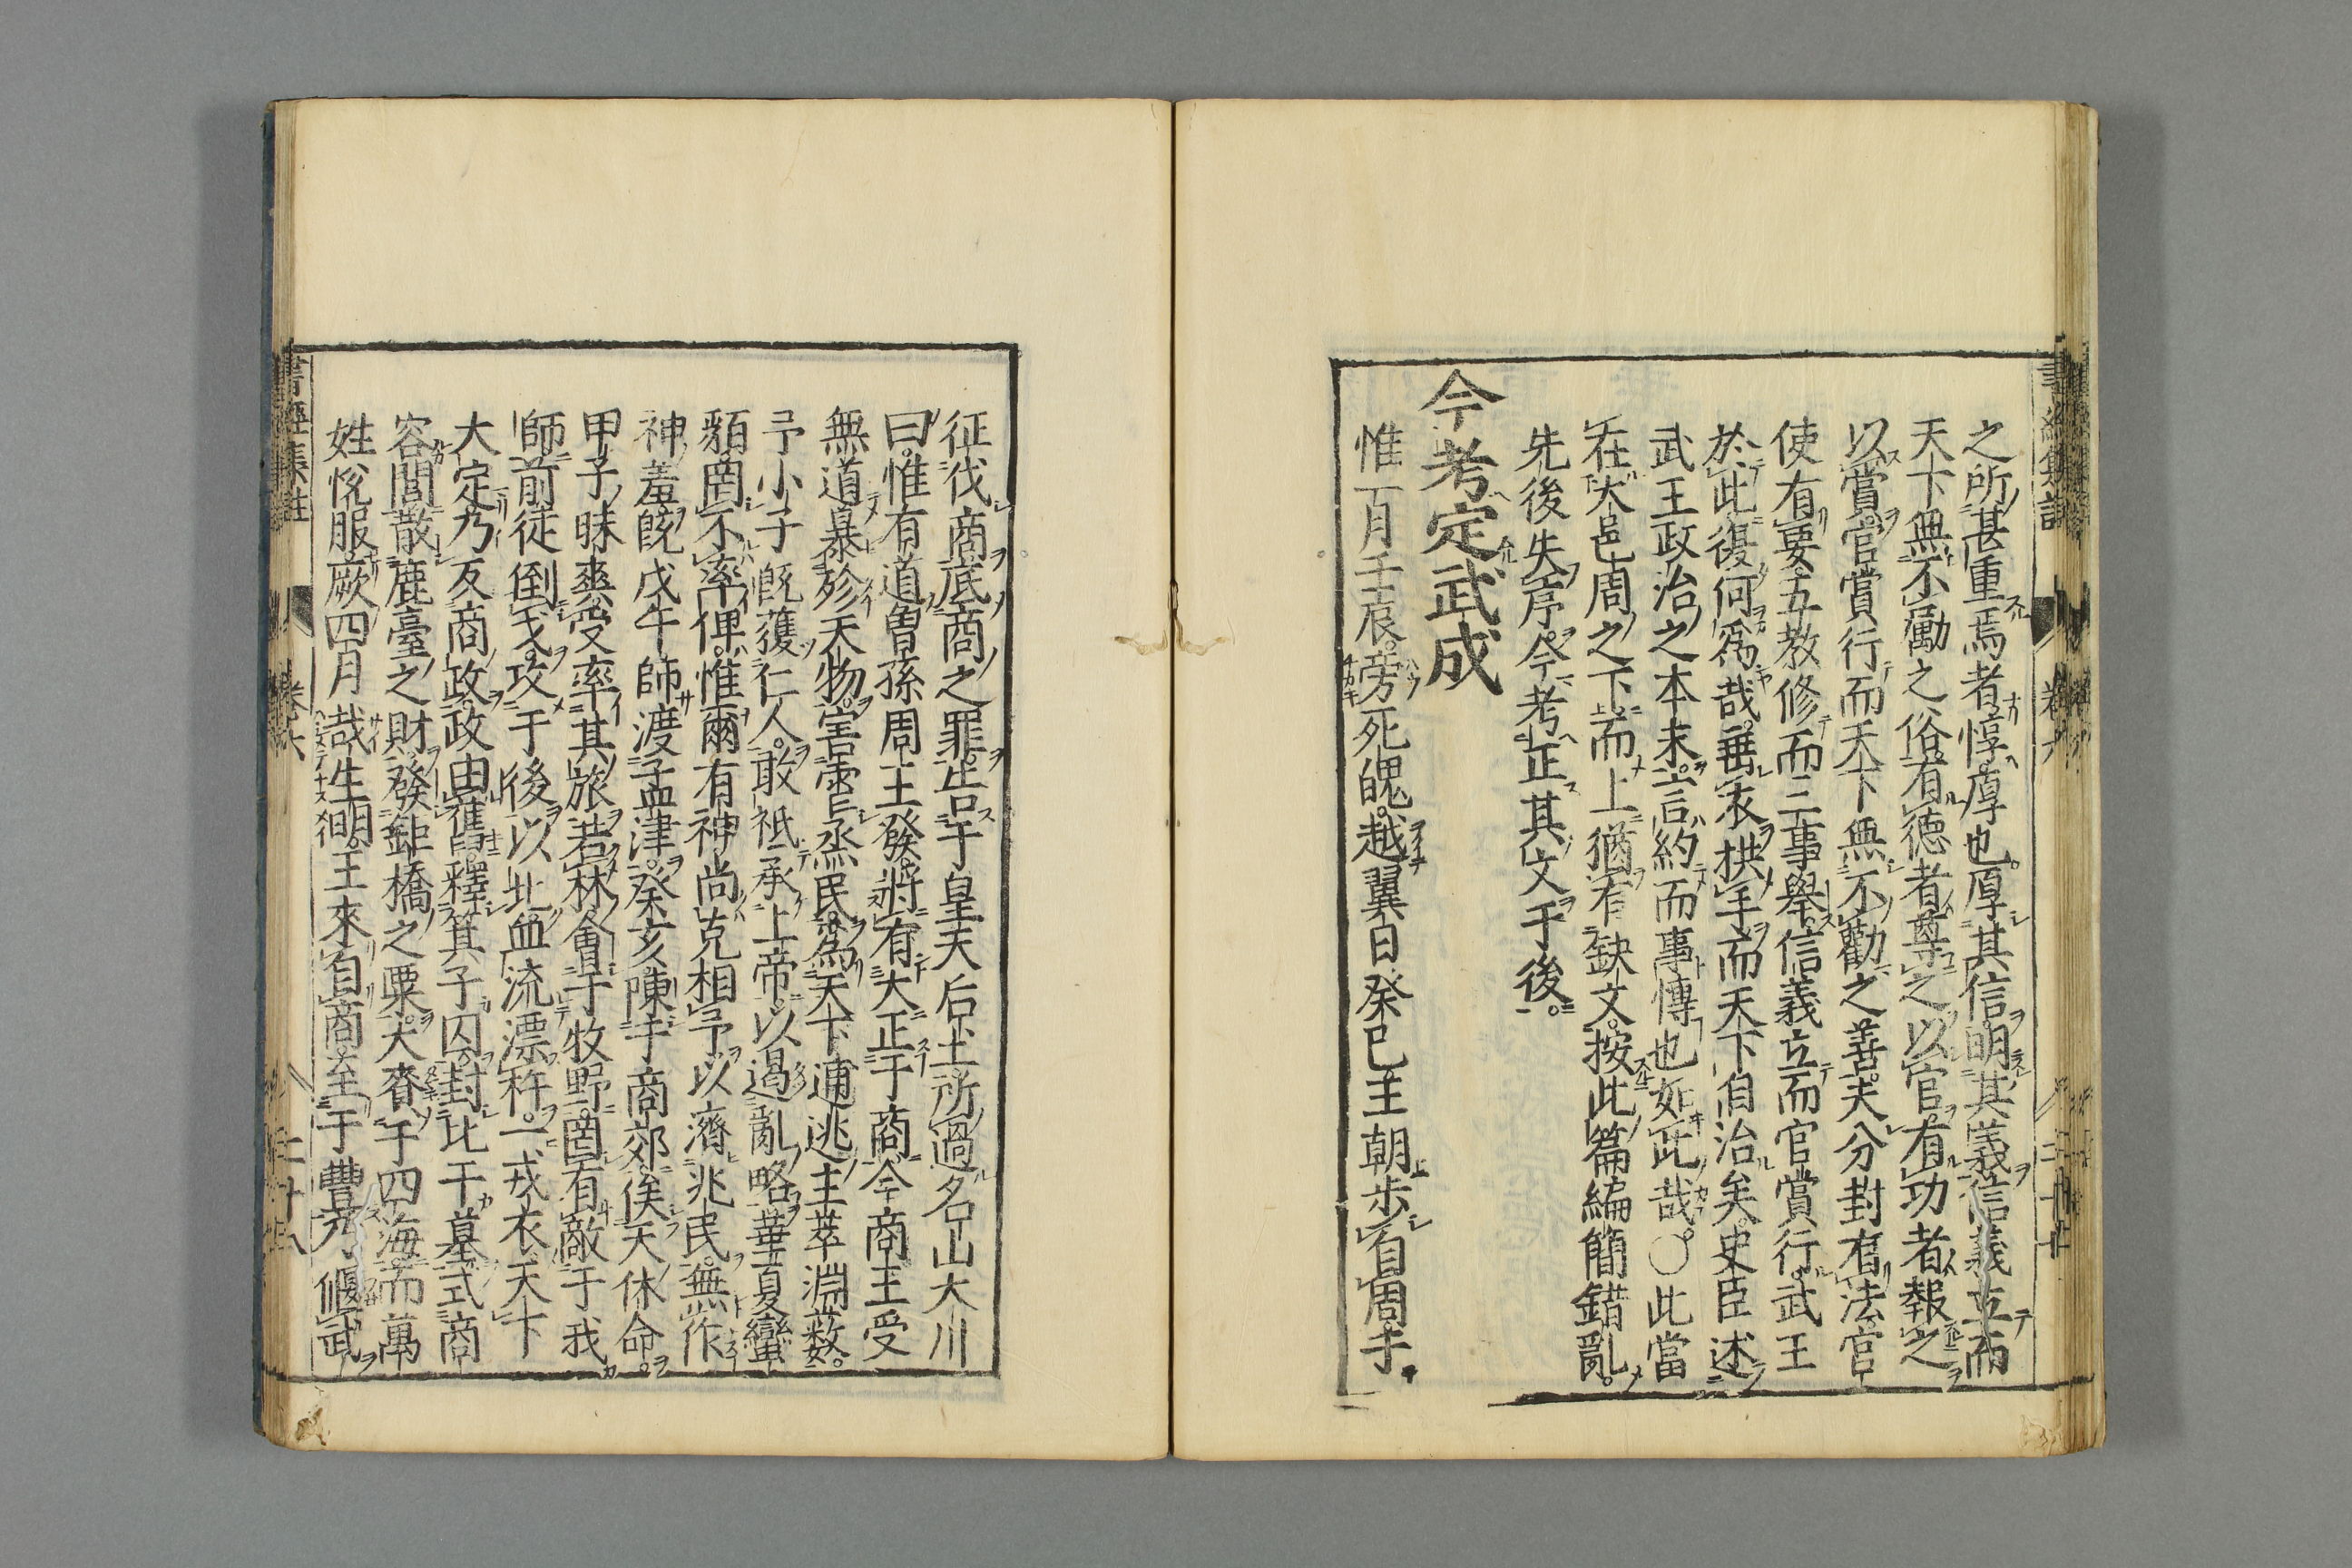 之所甚重焉者惇厚也厚其信明其義信義立而
天下無不勵之俗有德者尊之以官有功者報之
以賞官賞行而天下無不勸之善夫分封有法官
使有要五教修而三事舉信義立而官賞行武王
於此復何爲哉垂衣拱手而天下自治矣史臣述
武王政治之本末言約而事博也如此哉○此當
在大邑周之下而上猶有缺文按此篇編簡錯亂
先後失序今考正其文于後
今考定武成
惟一月壬辰旁死魄越翼日癸巳王朝步自周于
征伐商底商之罪告于皇天后土所過名山大川
曰惟有道曾孫周王發將有大正于商今商王受
無道暴殄天物害虐烝民爲天下逋逃主萃淵藪
予小子旣獲仁人敢祗承上帝以遏亂略華夏蠻
貊罔不率俾惟爾有神尚克相予以濟兆民無作
神羞旣戊午師渡孟津癸亥陳于商郊俟天休命
甲子昧爽受率其旅若林會于牧野罔有敵于我
師前徒倒戈攻于後以北血流漂杵一戎衣天下
大定乃反商政政由舊釋箕子囚封比干墓式商
容閭散鹿臺之財發鉅橋之粟大賚于四海而萬
姓悅服厥四月哉生明王來自商至于豐乃偃武
書經集註
卷六
二十八